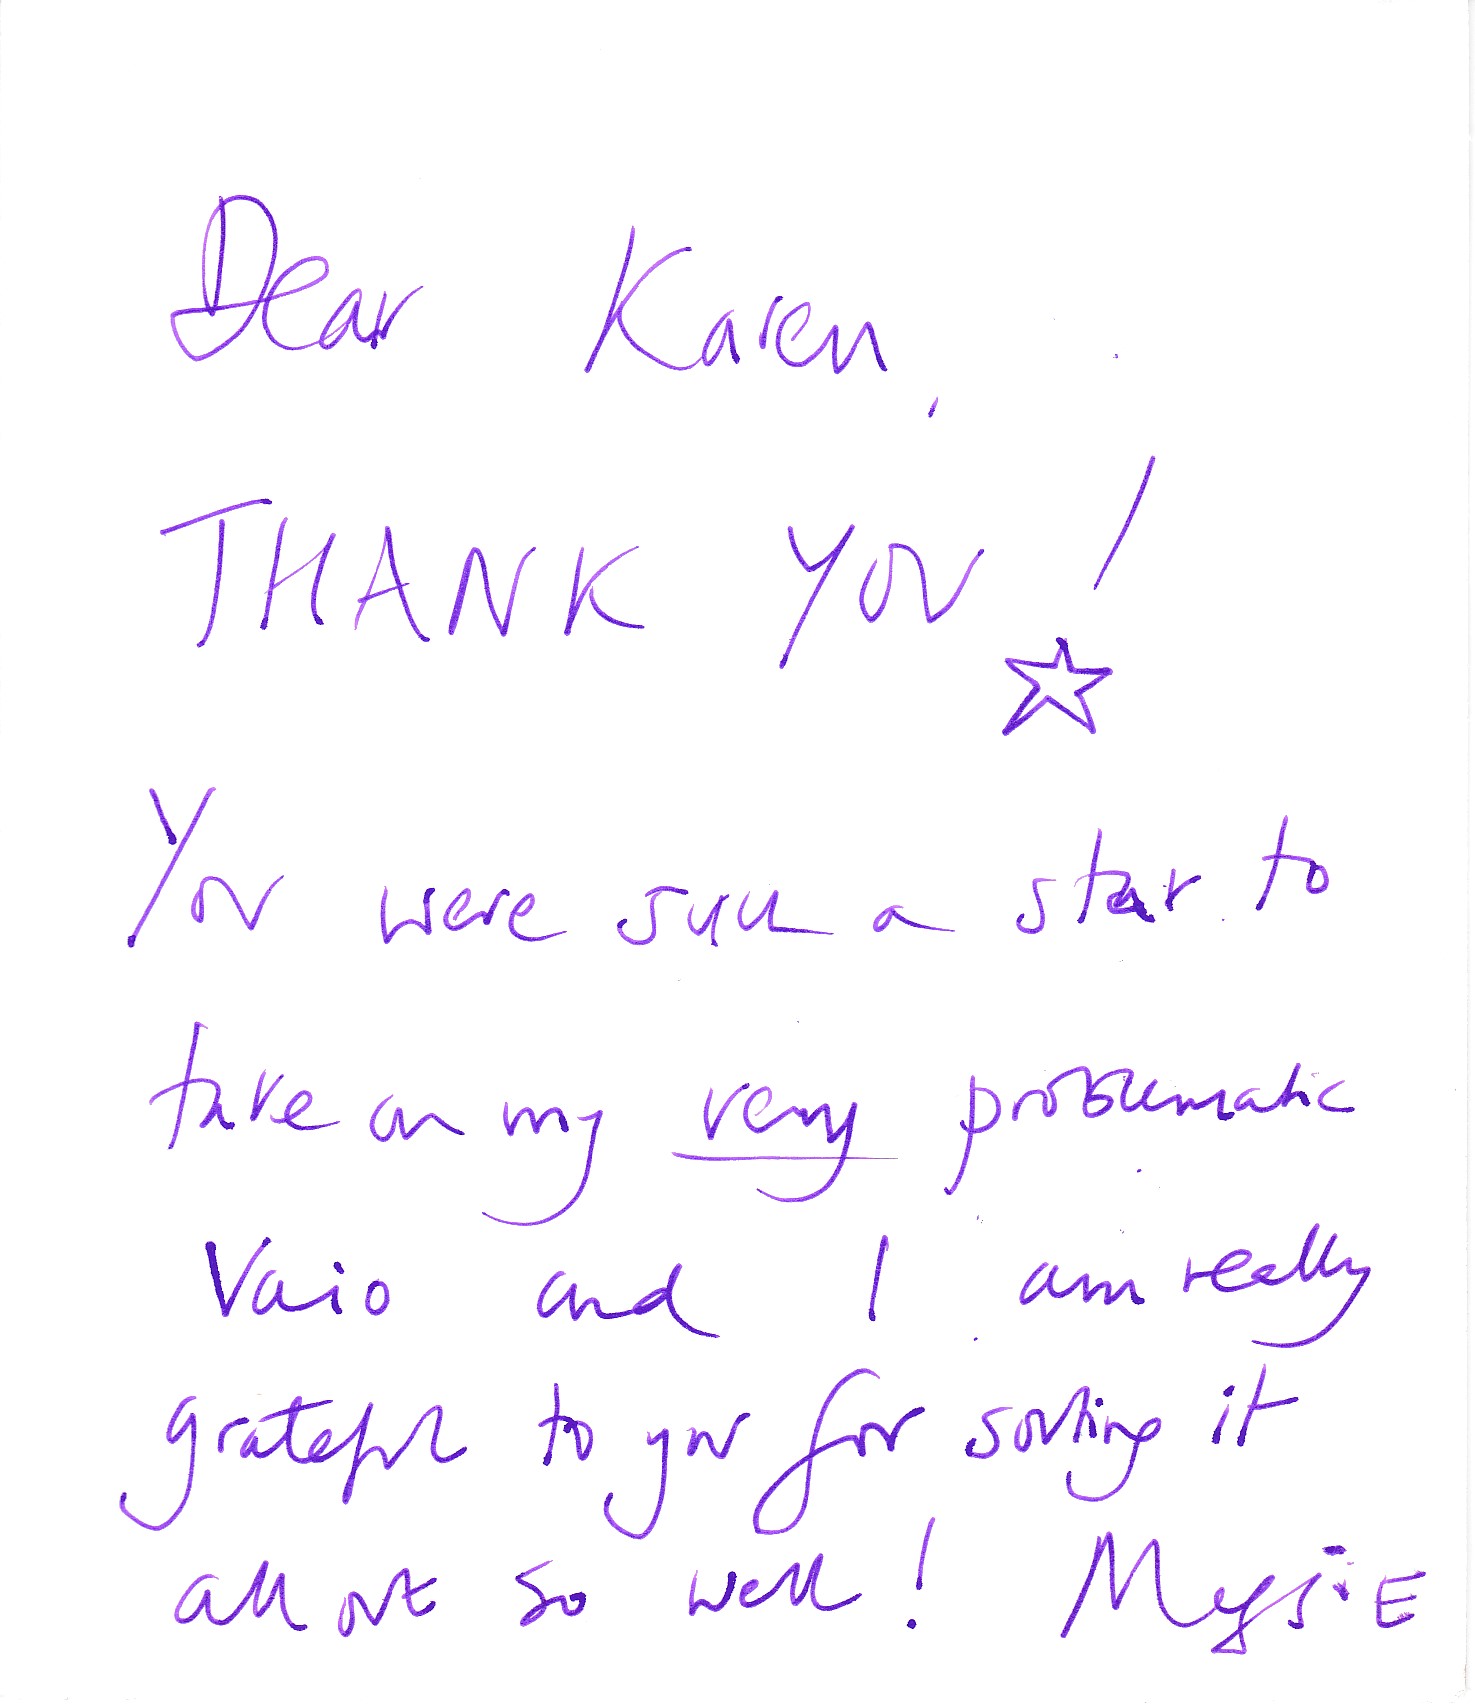 Dear Karen,
THANK YOU!
You were such a star to
take on my very problematic
Vaio and I am really
grateful to you for sorting it
all out so well!